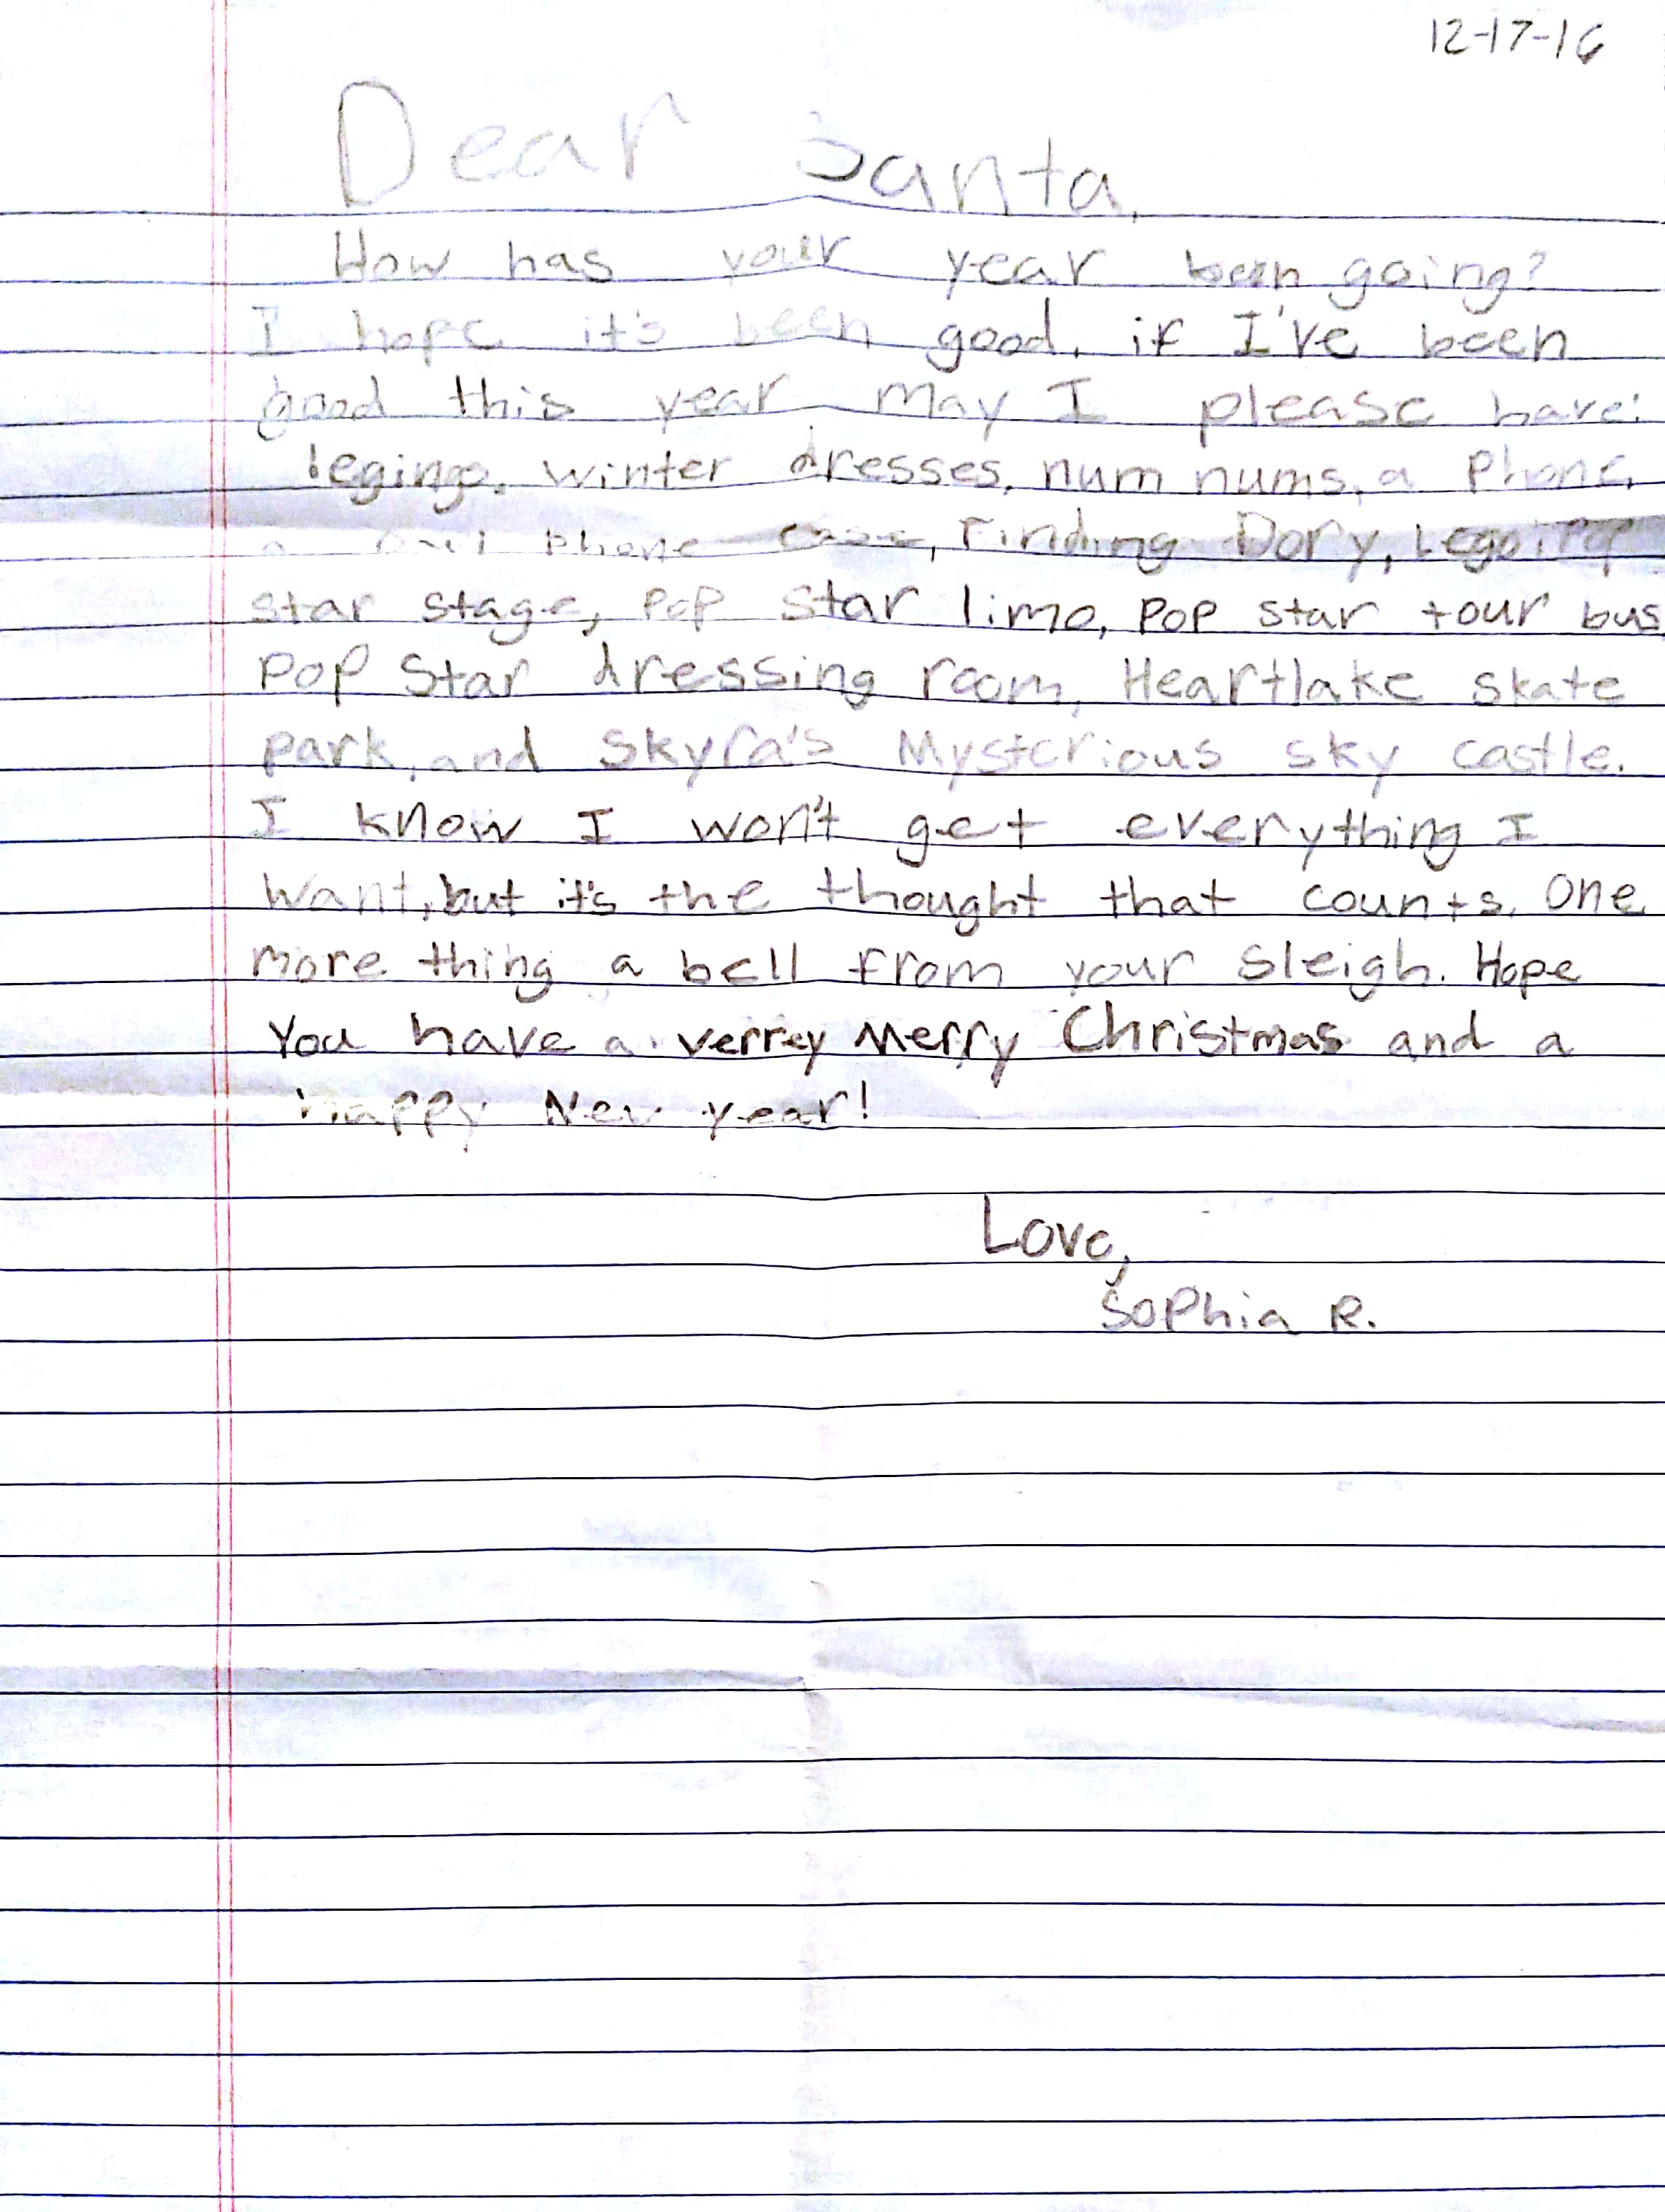 12-17-16
Dear Santa,
How has your year been going?
I hope it's been good, if I've been
good this year may I please have:
legings, winter dresses, num nums, a phone,
a phone case, Finding Dory, Lego: Pop
star stage, Pop star limo, Pop star tour bus,
Pop Star dressing room, Heartlake skate
park, and Skyra's Mysterious sky castle.
I know I won't get everything I
want, but it's the thought that counts. One
more thing a bell from your sleigh. Hope
you have a verrey Merry Christmas and a
Happy New year!
Love,
Sophia R.